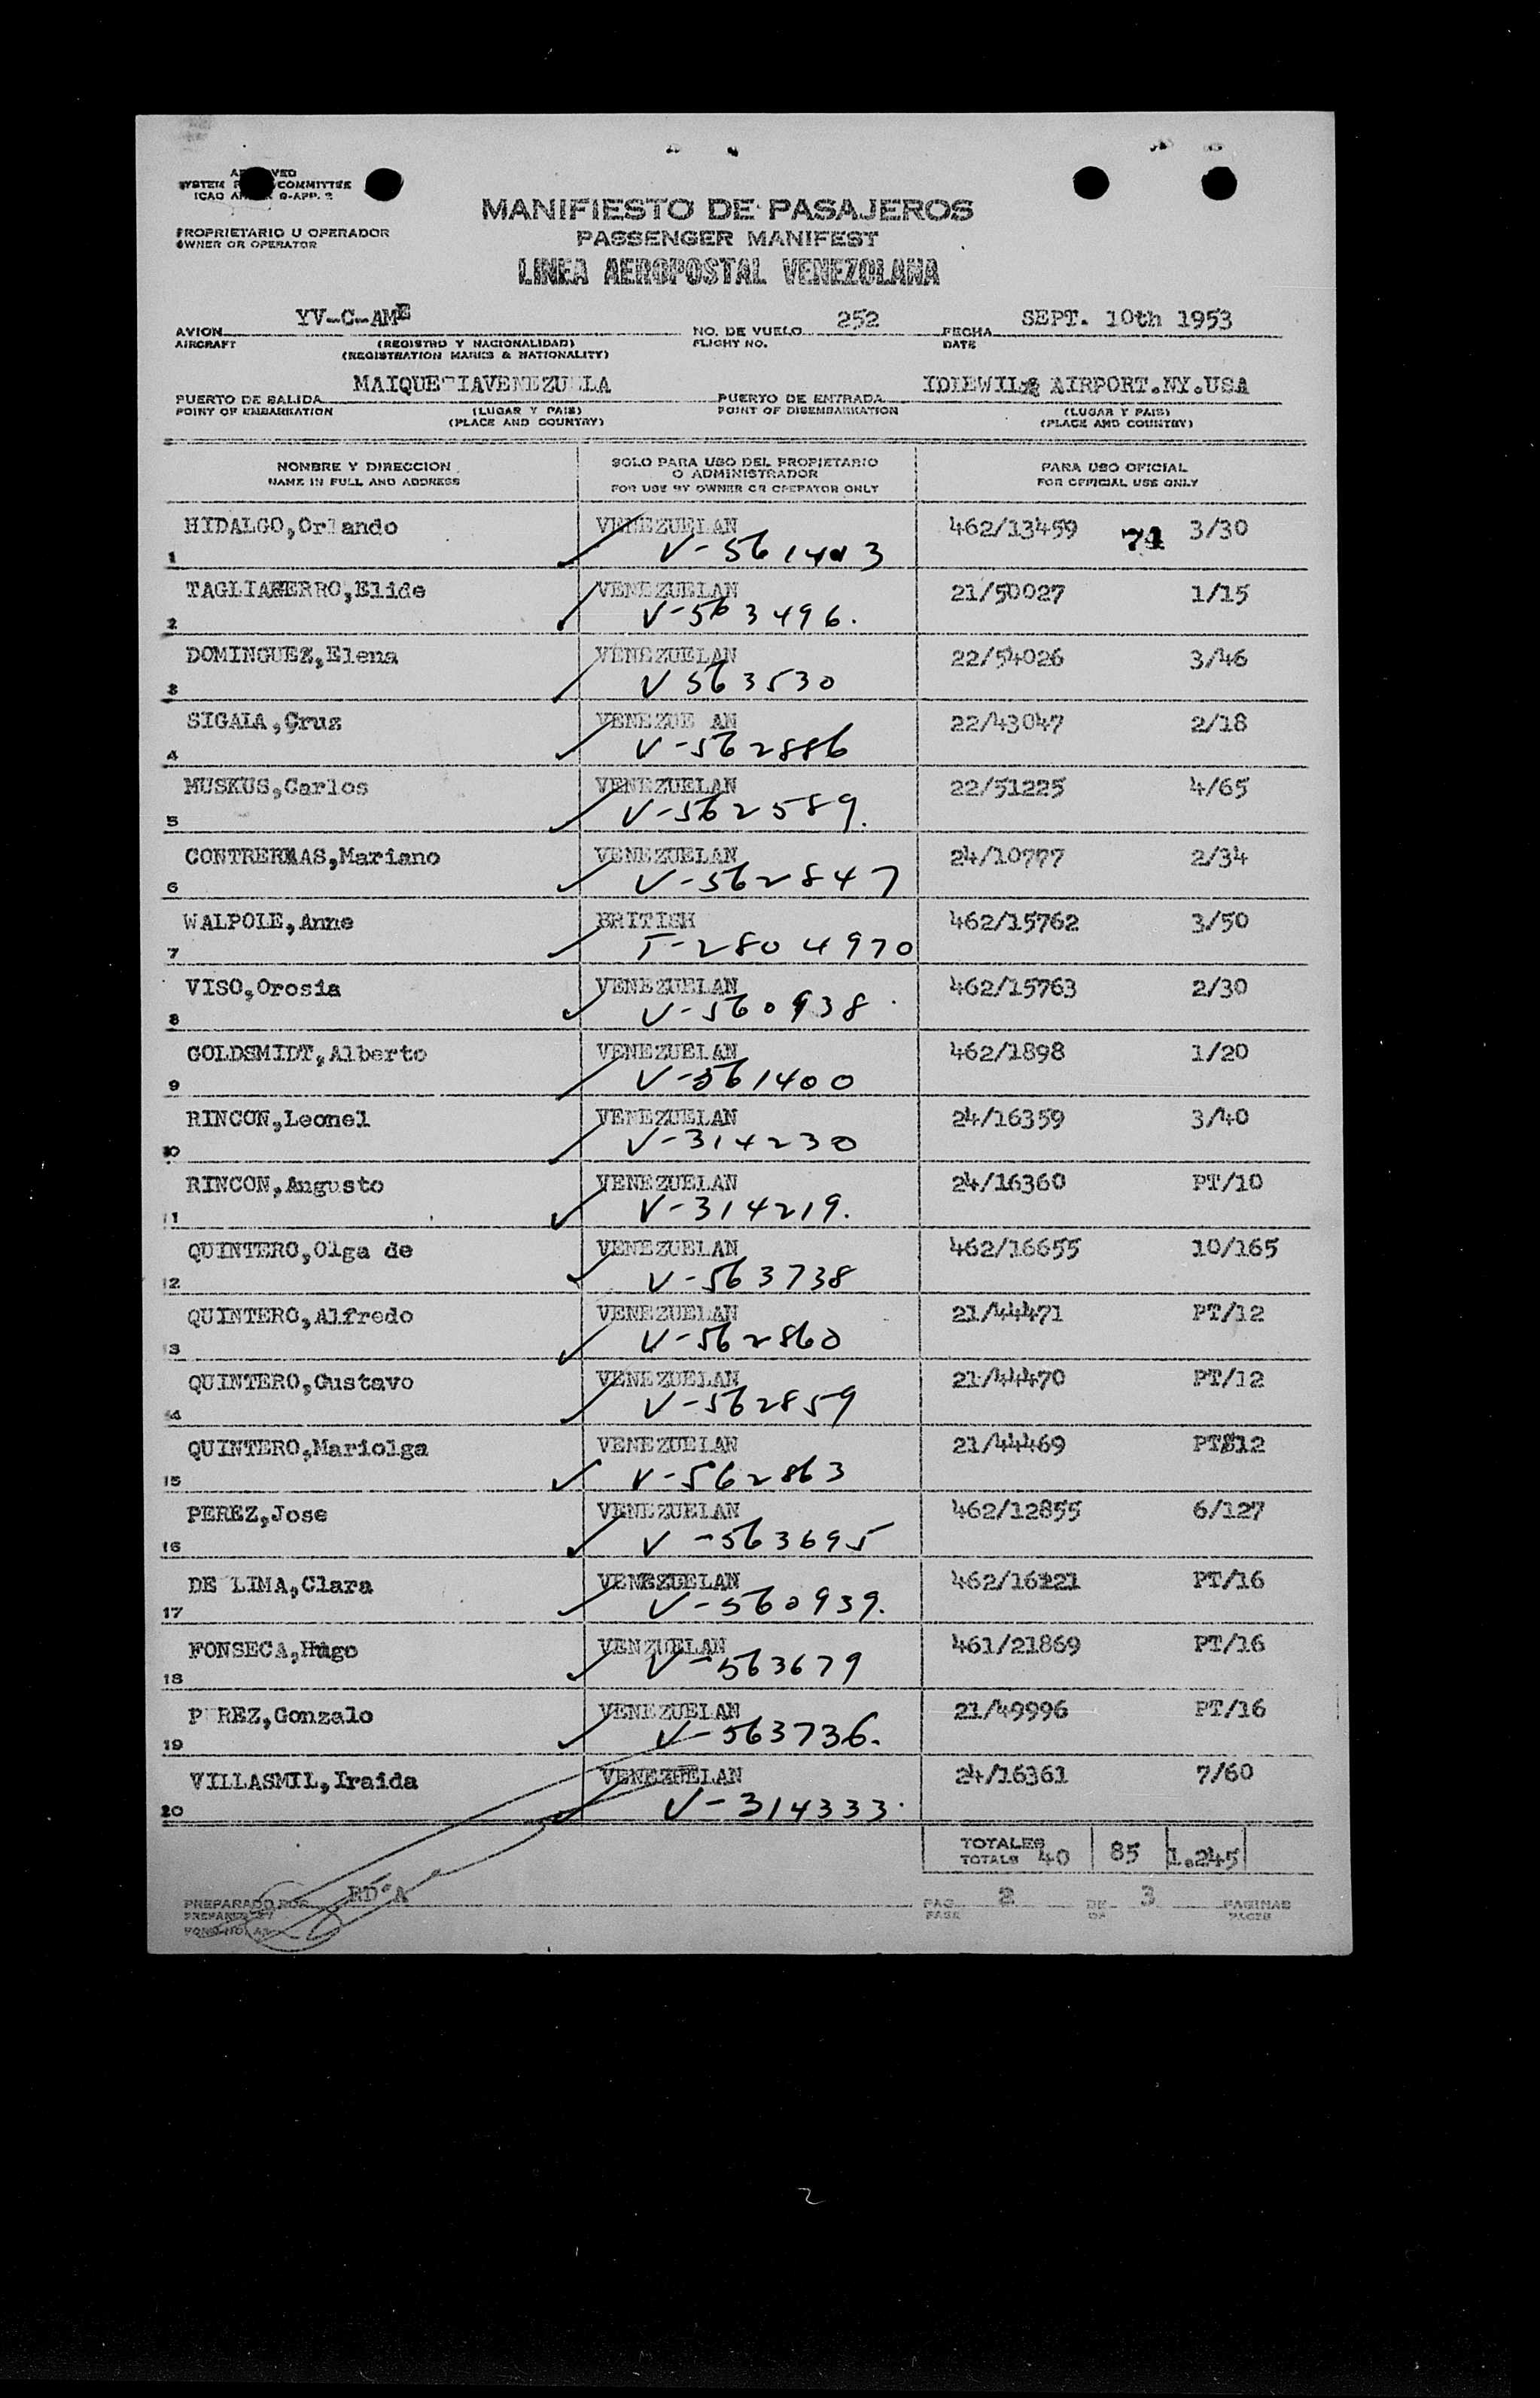 MANIFIESTO DE PASAJEROS
PROPRIETARIO U OPERADOR
OWNER OR OPERATOR
PASSENGER MANIFEST
LINEA AEROPOSTAL VENEZOLANA
AVION YV-C-AME NO. DE VUELO 252 FECHA SEPT. 10th 1953
AIRCRAFT (REGISTRO Y NACIONALIDAD) FLIGHT NO. DATE
(REGISTRATION MARKS & NATIONALITY)
PUERTO DE SALIDA PUERTO DE ENTRADA AIRPORT.NY.USA
POINT OF EMBARKATION (LUGAR Y PAIS) POINT OF DISEMBARKATION (LUGAR Y PAIS)
(PLACE AND COUNTRY) (PLACE AND COUNTRY)
NOMBRE Y DIRECCION SOLO PARA USO DEL PROPIETARIO PARA USO OFICIAL
NAME IN FULL AND ADDRESS O ADMINISTRADOR FOR OFFICIAL USE ONLY
FOR USE BY OWNER OR OPERATOR ONLY
HIDALGO,Orlando VENEZUELAN 462/13459 3/30
1
Elide VENEZUELAN 21/50027 1/15
2 V-563496.
DOMINGUEZ,Elena VENEZUELAN 22/54026 3/46
3 V 563530
SIGALA,Cruz 22/43047 2/18
4 V-562886
MUSKUS,Carlos VENEZUELAN 22/51225 4/65
5 V-562589.
Mariano VENEZUELAN 24/10777 2/34
6 V-562847
WALPOLE,Anne BRITISH 462/15762 3/50
7 T-2804970
VISO,Orosia VENEZUELAN 462/15763 2/30
8 V-560938
GOLDSMIDT,Alberto VENEZUELAN 462/1898 1/20
9 V-561400
RINCON,Leonel VENEZUELAN 24/16359 3/40
10 V-314230
RINCON,Angusto VENEZUELAN 24/16360 PT/10
11 V-314219.
QUINTERO,Olga de VENEZUELAN 462/16655 10/165
12 V-563738
QUINTERO,Alfredo VENEZUELAN 21/44471 PT/12
13 V-562860
QUINTERO,Gustavo VENEZUELAN 21/44470 PT/12
14 V-562859
QUINTERO,Mariolga VENEZUELAN 21/44469
15 V-562863
PEREZ,Jose VENEZUELAN 462/12855 6/127
16 V-563695
DE LIMA,Clara VENEZUELAN PT/16
17 V-560939.
FONSECA,Hugo VENZUELAN 461/21869 PT/16
18 V-563679
Gonzalo VENEZUELAN 21/49996 PT/16
19 V-563736.
VILLASMIL,Iraida VENEZUELAN 24/16361 7/60
20 V-314333.
TOTALES
TOTALS 40 85 1.245
PREPARADO POR PAG. 2 DE 3 PAGINAS
PREPARED BY PAGE OF PAGES
2